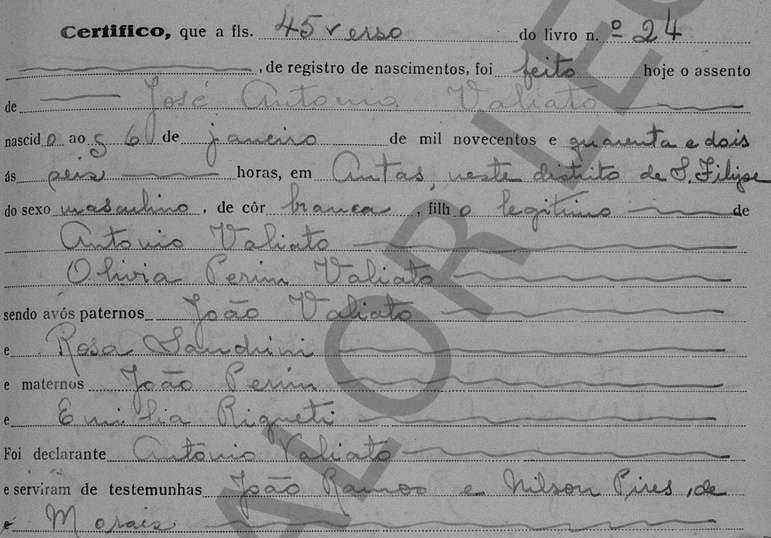 Certifico, que a fls. 45 verso do livro n. º 24
, de registro de nascimentos, foi feito hoje o assento
de José Antonio Valiato
nascido aos 6 de janeiro de mil novecentos e quarenta e dois
ás seis horas, em Antas, neste distrito de S. Filipe
do sexo masculino, de côr branca, filho legitimo de
Antonio Valiato
Olivia Perim Valiato
sendo avós paternos João Valiato
e Rosa Sandrini
e maternos João Perim
e Emilia Rigueti
Foi declarante Antonio Valiato
e serviram de testemunhas João Ramos e Nilson Pires, de
e Morais
VALOR LE